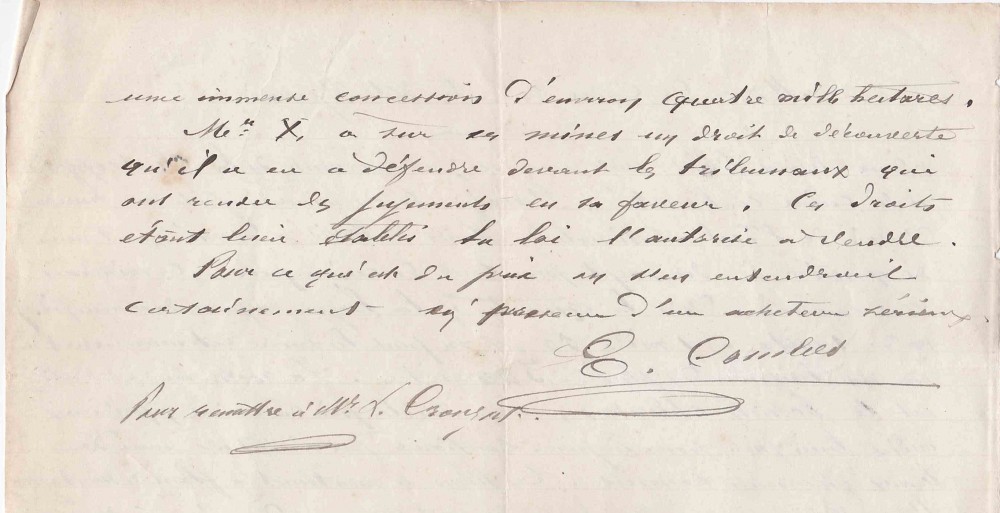 une immense concession d'environ quatre mille hectares.
Mr. X, a sur ces mines un droit de découverte
qu'il a eu à défendre devant les tribunaux qui
ont rendu des jugements en sa faveur. Ces droits
étant bien établis la loi l'autorise à vendre.
Pour ce qui est du prix on s'en entendrait
certainement en présence d'un acheteur sérieux.
E. Combes
Pour remettre à Mr. L.